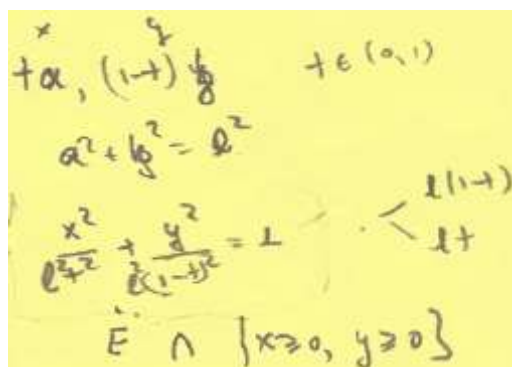 x y
ta, (1-t) b t ∈ (0,1)
a² + b² = l²
x²/(l²t²) + y²/(l²(1-t)²) = 1 . < l(1-t) lt
E ∩ {x≥0, y≥0}